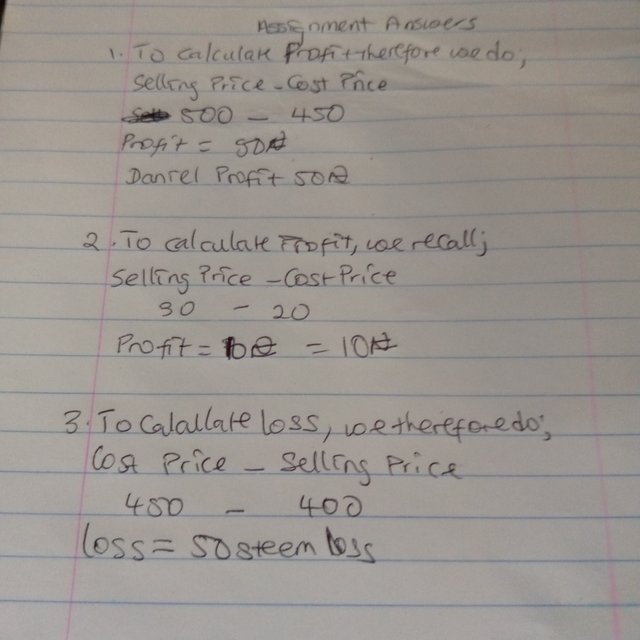 Assignment Answers
1. To calculate Profit therefore we do;
Selling Price - Cost Price
500 - 450
Profit = 50₦
Daniel Profit 50₦
2. To calculate Profit, we recall;
Selling Price - Cost Price
30 - 20
Profit = 10₦ = 10₦
3. To Calallate loss, we therefore do;
Cost Price - Selling Price
450 - 400
loss = 50 steem loss